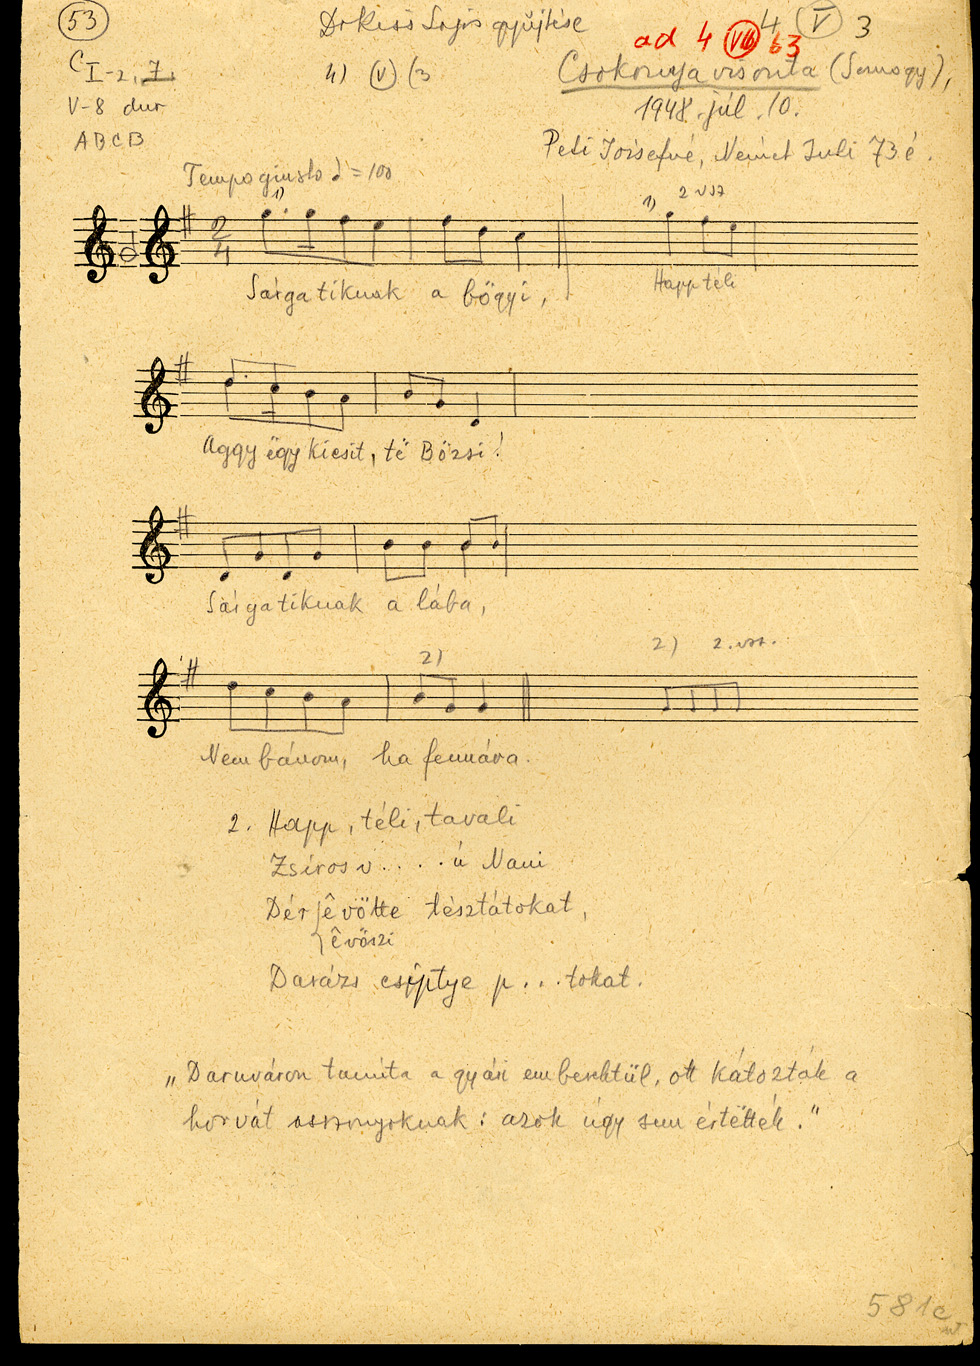 53
Dr Kiss Lajos gyűjtése
4 V 3
ad 4 VII 63
C I-2, 7.
4) V (3
Csokonyavisonta (Somogy),
V-8 dur
1948. júl. 10.
ABCB
Peti Józsefné, Német Juli 73 é.
Tempo giusto = 100
1)
1) 2 vsz
2 4
Sárga tiknak a bögyi,
Happ téli
Aggy ëgy kicsit, të Bözsi!
Sárga tiknak a lába,
2)
2) 2. vsz.
Nem bánom, ha fennára.
2. Happ, téli, tavali
Zsíros v . . . . ú Nani
Dér { êvötte tésztátokat,
{ êvöszi
Darázs csíptye p . . . tokat.
„Daruváron tanúta a gyári emberektül, ott kátozták a
horvát asszonyoknak: azok úgy sem értëtték."
581c